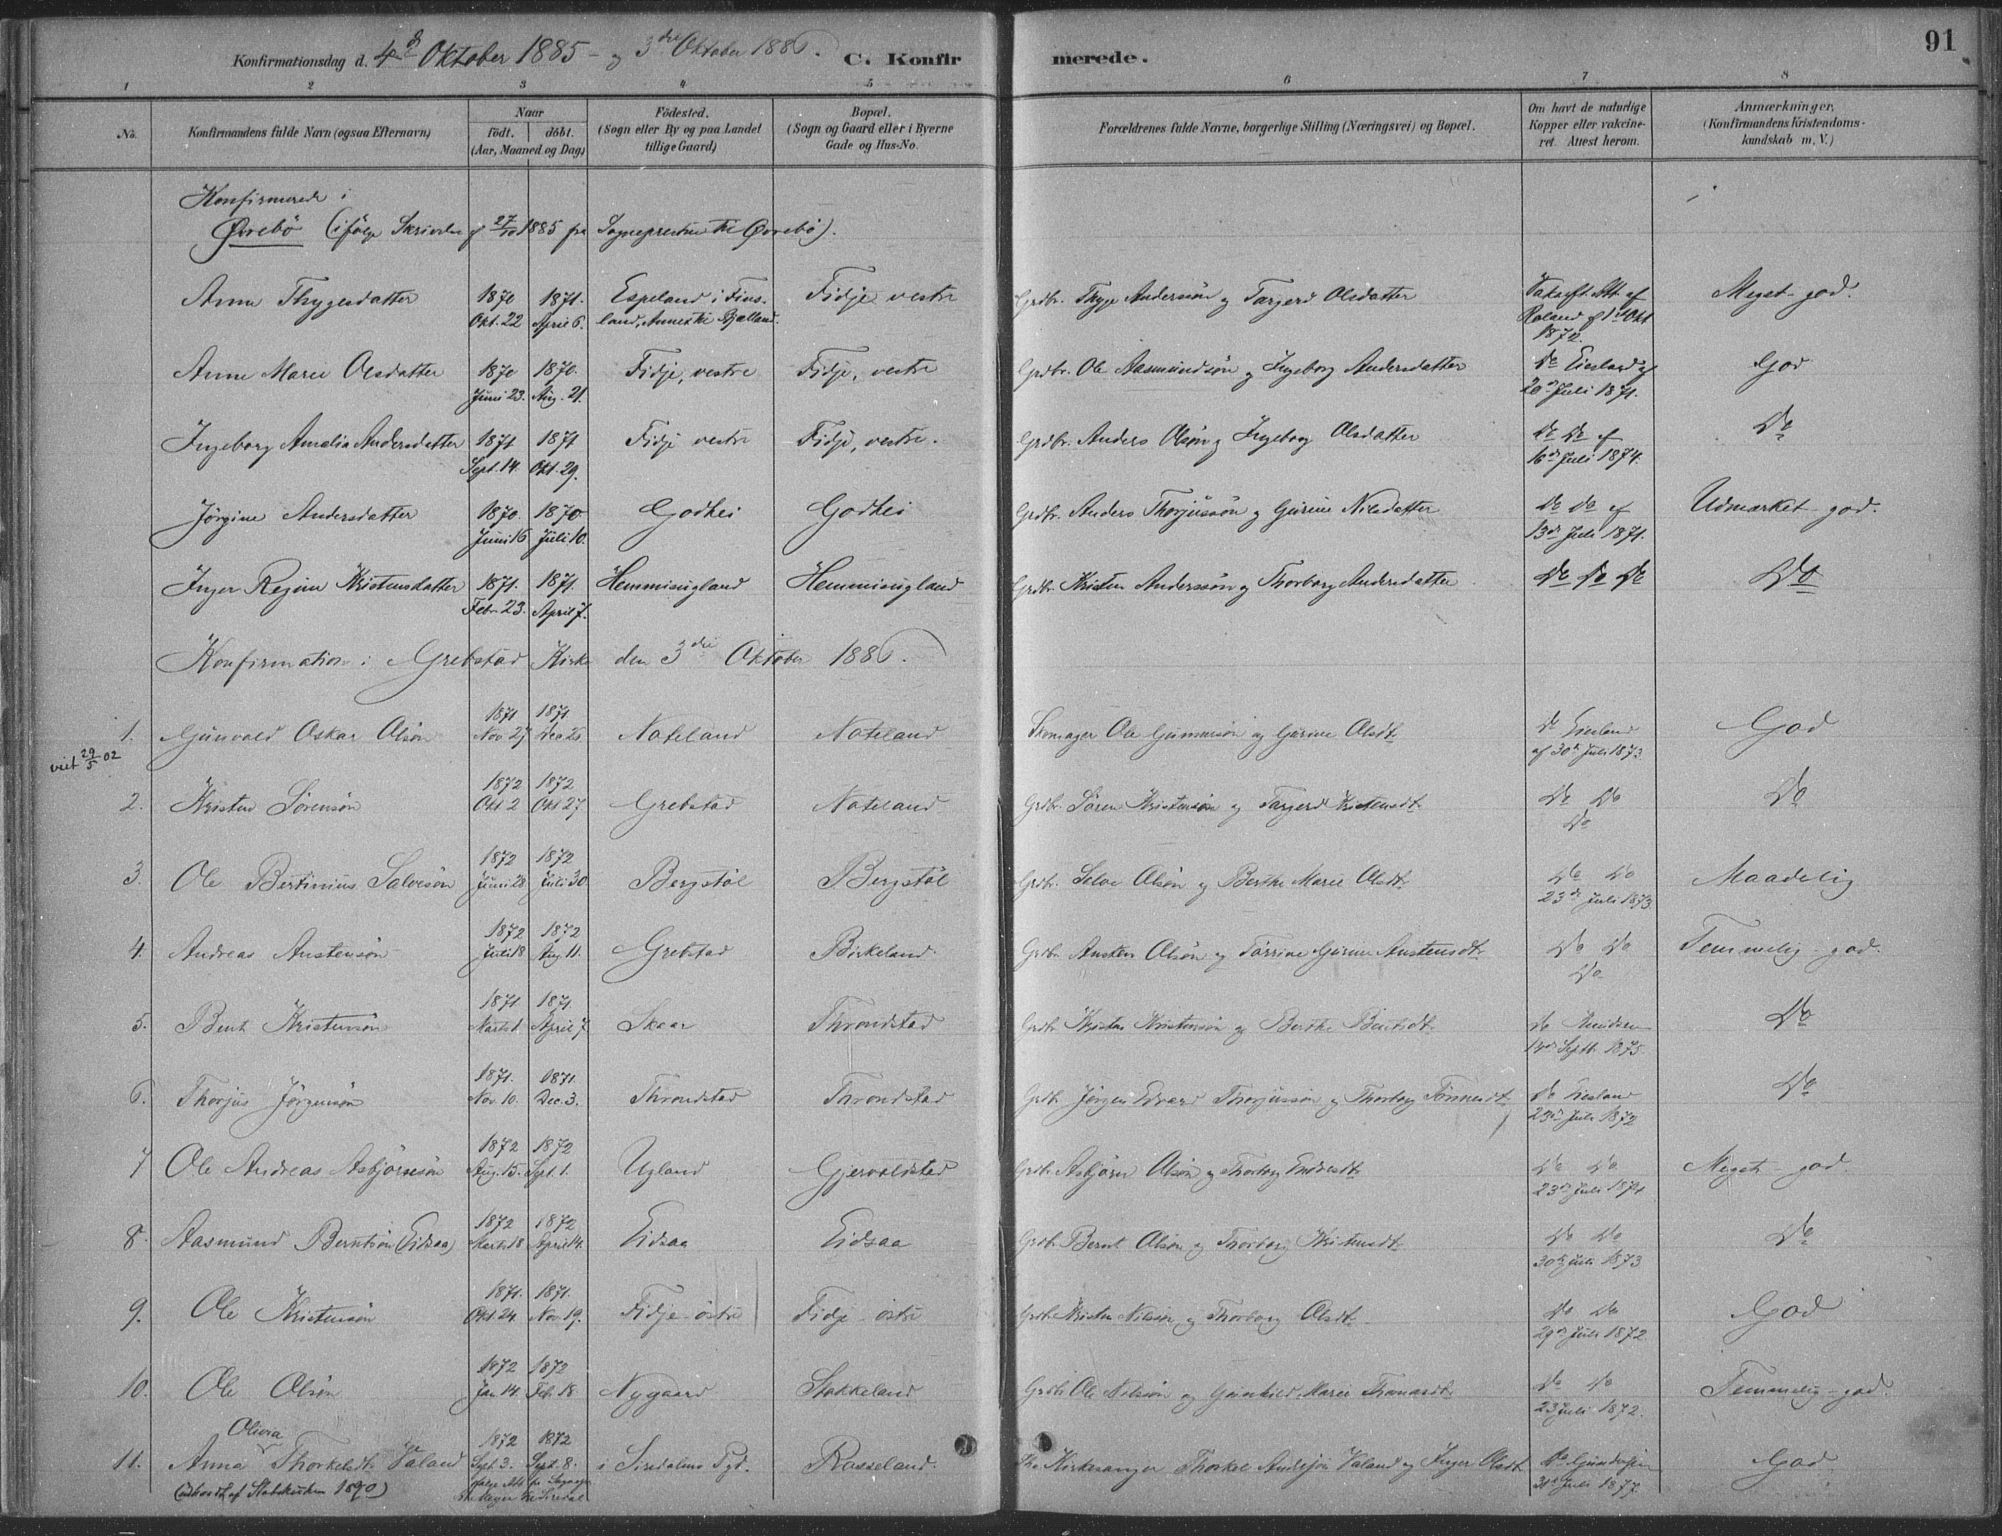 Konfirmationsdag d. 4de Oktober 1885 - og 3die Oktober 1886. C. Konfirmerede. 91
1 2 3 4 5 6 7 8
No. Konfirmandens fulde Navn (ogsaa Efternavn) Naar födt. döbt. (Aar, Maaned og Dag) Födested. (Sogn eller By og paa Landet tillige Gaard) Bopæl. (Sogn og Gaard eller i Byerne Gade og Hus-No. Forældrenes fulde Navne, borgerlige Stilling (Næringsvei) og Bopæl. Om havt de naturlige Kopper eller vakcineret. Attest herom. Anmærkninger, (Konfirmandens Kristendomskundskab m. V.)
Konfirmerede i
Øvrebö (ifölge Skrivelse af 27/10 1885 fra Sognepresten til Øvrebö).
Anne Thygesdatter 1870 Okt. 22 1871. April 6. Espeland i Finsland, Annex til Bjelland. Fidje vestre Grdbr. Thyge Anderssön og Targerd Olsdatter Vakc. ft. Att. af Roland af 1ste Okt 1872. Meget god.
Anne Marie Olsdatter 1870 Juni 23. 1870. Aug. 21. Fidje, vestre Fidje, vestre Grdbr. Ole Aasmundsön og Ingeborg Andersdatter Do Eieland af 20de Juli 1871. God
Ingeborg Amalia Andersdatter 1871 Sept. 14. 1871 Okt. 29. Fidje vestre Fidje, vestre. Grdbr. Anders Olsön og Ingeborg Olsdatter Do Do af 16de Juli 1874. Do
Jörgine Andersdatter 1870. Juni 16 1870 Juli 10. Godhei Godhei Grdbr. Anders Thorjussön og Gurine Nilsdatter Do Do af 13de Juli 1871. Udmærket god.
Inger Regine Kristensdatter 1871. Febr. 23. 1871. April 7. Hemmingland Hemmingland Grdbr. Kristen Anderssön og Thorborg Andersdatter Do Do Do Do
Konfirmation i Grebstad Kirke den 3die Oktober 1886.
1. Gunvald Oskar Olsön 1871 Nov. 27 1871 Dec. 2 Noteland Noteland Skomager Ole Gunnersön og Gurine Olsdt. Do Eieland af 30te Juli 1873 God
viet 29/5 02
2. Kristen Sörensön 1872 Okt 2 1872 Okt 27 Grebstad Noteland Grdbr. Sören Kristensön og Targerd Kristensdt. Do Do Do Do
3. Ole Bertinius Salvesön 1872 Juni 28 1872 Juli 30 Bergstöl Bergstöl Grdbr. Salve Olsön og Berthe Marie Olsdt. Do Do 23de Juli 1873. Maadelig
4. Andreas Austensön 1872 Juli 18 1872 Aug. 11. Grebstad Birkeland. Grdbr. Austen Olsön og Torrine Gurine Austensdt. Do Do Do Temmelig god.
5. Bent Kristensön 1871. Marts 1. 1871. April 7 Skaar Throndstad Grdbr. Kristen Kristensön og Berthe Bentsdt. Do Knudsen 14de Septb. 1875. Do
6. Thorjus Jörgensön 1871. Nov. 10. 1871. Dec. 3. Throndstad Throndstad Grdbr. Jörgen Edvard Thorjussön og Thorborg Tönnesdt. Do Eieland 23de Juli 1872 Do
7 Ole Andreas Asbjörnsön 1872 Aug. 15. 1872 Sept. 1. Ugland Gjervoldstad Grdbr. Asbjörn Olsön og Thorborg Endresdt. Do Do 23de Juli 1874 Meget god.
8. Aasmund Berntsön (Eidsaa) 1872 Marts 18 1872 April 14. Eidsaa Eidsaa Grdbr. Bernt Olsön og Thorborg Kristensdt. Do Do 30te Juli 1873 Do
9. Ole Kristensön 1871. Okt. 24. 1871. Nov. 19. Fidje östre Fidje östre Grdbr. Kristen Nilsön og Thorborg Olsdt. Do Do 29de Juli 1872. God
10. Ole Olsön 1872 Jan. 14. 1872 Feb. 18 Nygaard Stokkeland Grdbr. Ole Nilsön og Gunhild Marie Thomasdt. Do Do 23 Juli 1872. Temmelig god.
Olivia
11. Anna Thorkelsdt. Valand 1872 Sept. 3. 1872 Sept. 8. i Sirdalens Pgd. Rosseland. Fhv. Kirkesanger Thorkel Andersön Valand og Inger Olsdt. Do Gundersen 31te Juli 1877. God
(udtraadt af Statskirken 1890)